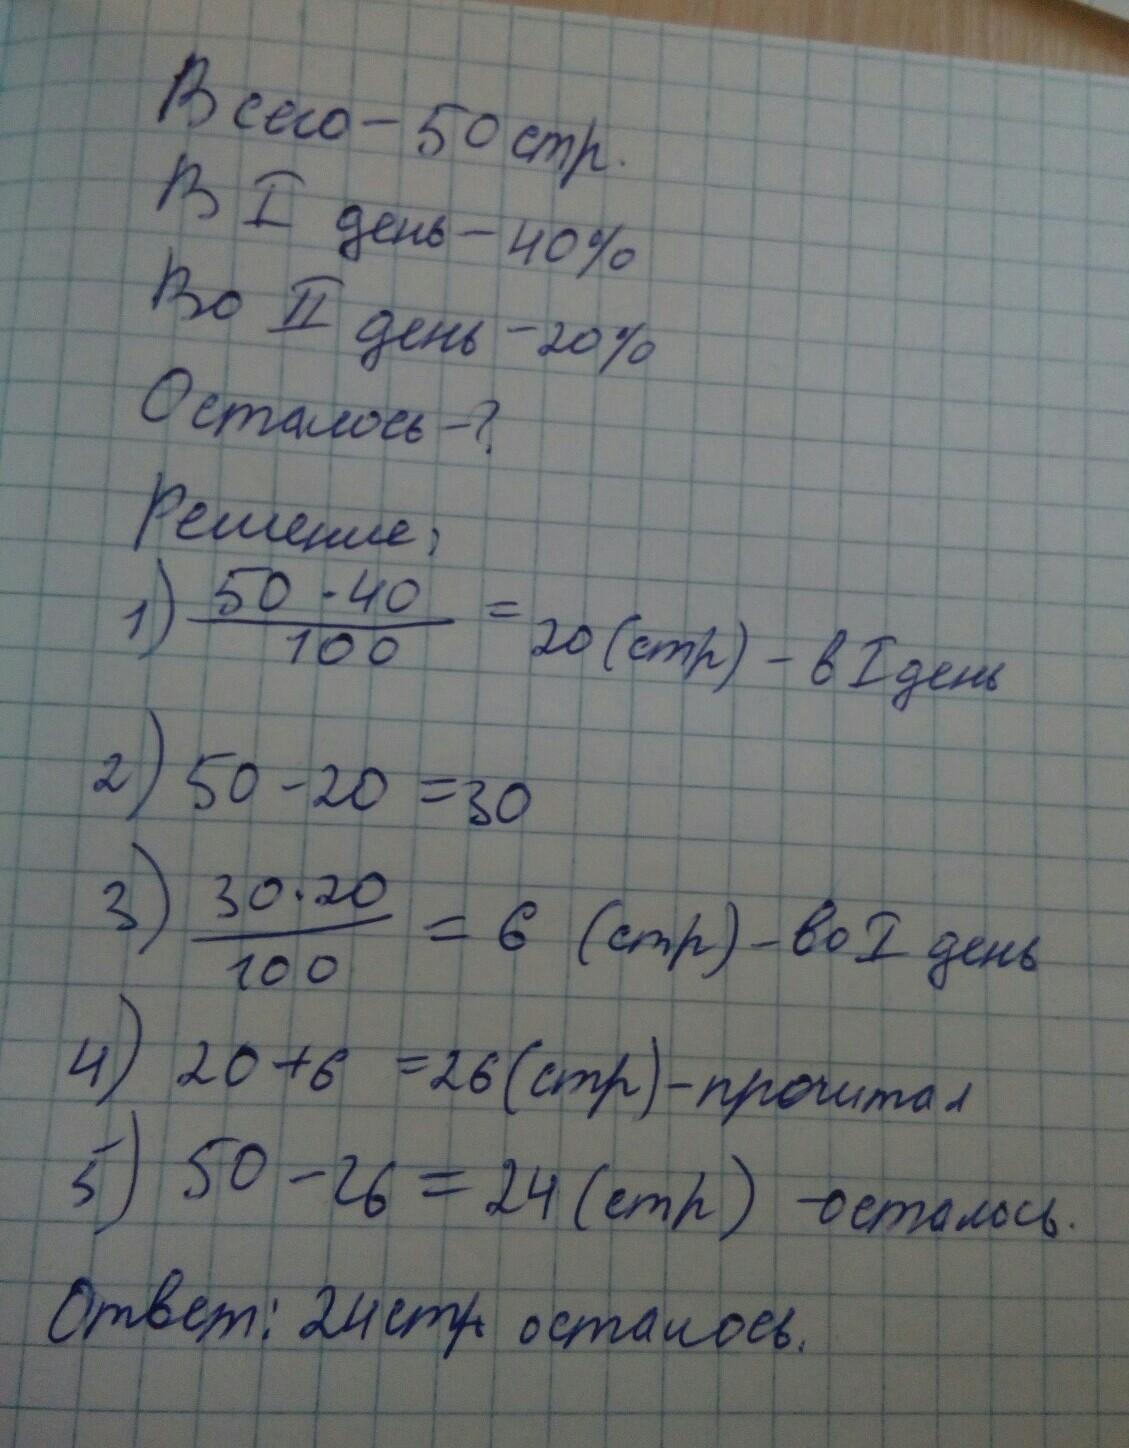 Всего – 50 стр.
В I день – 40%
Во II день – 20%
Осталось – ?
Решение:
1) 50 · 40 / 100 = 20 (стр) – в I день
2) 50 – 20 = 30
3) 30 · 20 / 100 = 6 (стр) – во I день
4) 20 + 6 = 26 (стр) – прочитал
5) 50 – 26 = 24 (стр) – осталось.
Ответ: 24 стр осталось.